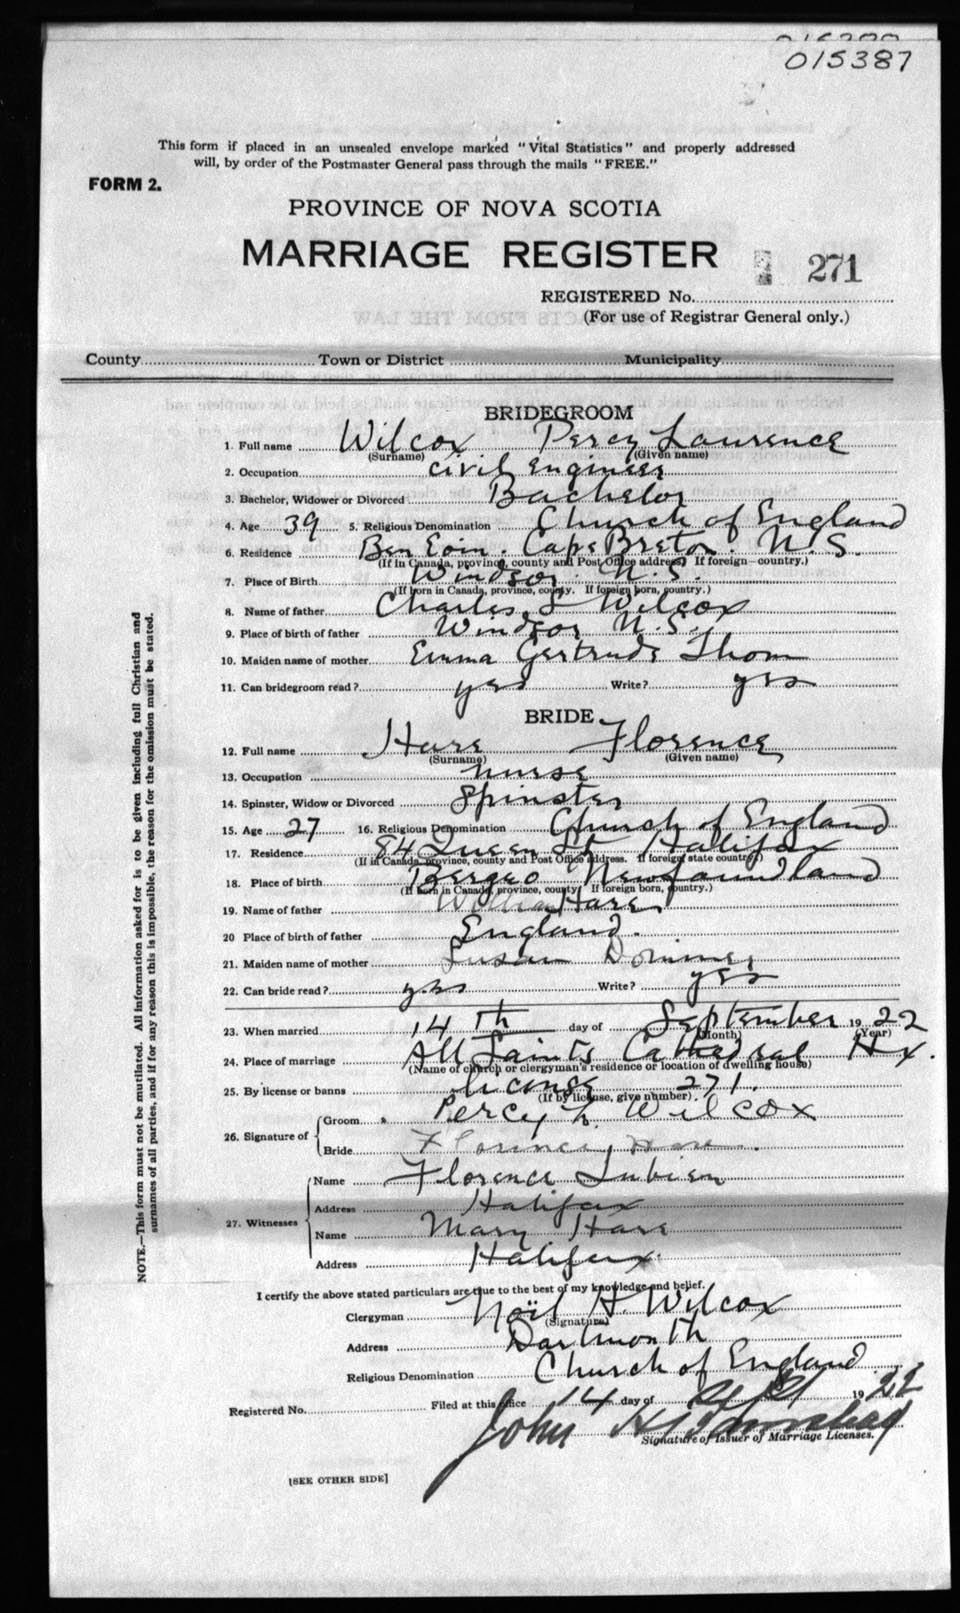 015387
This form if placed in an unsealed envelope marked "Vital Statistics" and properly addressed
will, by order of the Postmaster General pass through the mails "FREE."
FORM 2.
PROVINCE OF NOVA SCOTIA
MARRIAGE REGISTER 271
REGISTERED No.
(For use of Registrar General only.)
County Town or District Municipality
BRIDEGROOM
1. Full name Wilcox Percy Laurence
(Surname) (Given name)
2. Occupation civil Engineer
3. Bachelor, Widower or Divorced Bachelor
4. Age 39 5. Religious Denomination Church of England
6. Residence Ben Eoin. Cape Breton. N.S.
(If in Canada, province, county and Post Office address) If foreign—country.)
7. Place of Birth Windsor. N.S.
(If born in Canada, province, county. If foreign born, country.)
8. Name of father Charles S Wilcox
9. Place of birth of father Windsor N.S.
10. Maiden name of mother Emma Gertrude Thom
11. Can bridegroom read? yes Write? yes
BRIDE
12. Full name Hare Florence
(Surname) (Given name)
13. Occupation nurse
14. Spinster, Widow or Divorced Spinster
15. Age 27 16. Religious Denomination Church of England
17. Residence 84 Queen St Halifax
(If in Canada, province, county and Post Office address. If foreign state country)
18. Place of birth Burgeo Newfoundland
(If born in Canada, province, county If foreign born, country.)
19. Name of father William Hare
20 Place of birth of father England.
21. Maiden name of mother Susan
22. Can bride read? yes Write? yes
23. When married 14 Th day of September 1922
(Month) (Year)
24. Place of marriage All Saints Cathedral Hx.
(Name of church or clergyman's residence or location of dwelling house)
25. By license or banns license 271.
(If by license, give number)
26. Signature of Groom Percy L. Wilcox
Bride Florence Hare.
27. Witnesses Name Florence
Address Halifax
Name Mary Hare
Address Halifax
I certify the above stated particulars are true to the best of my knowledge and belief.
Clergyman Noël H. Wilcox
(Signature)
Address Dartmouth
Religious Denomination Church of England
Registered No. Filed at this office 14 day of Sept 1922
John
Signature of Issuer of Marriage Licenses.
[SEE OTHER SIDE]
NOTE.—This form must not be mutilated. All information asked for is to be given including full Christian and
surnames of all parties, and if for any reason this is impossible, the reason for the omission must be stated.